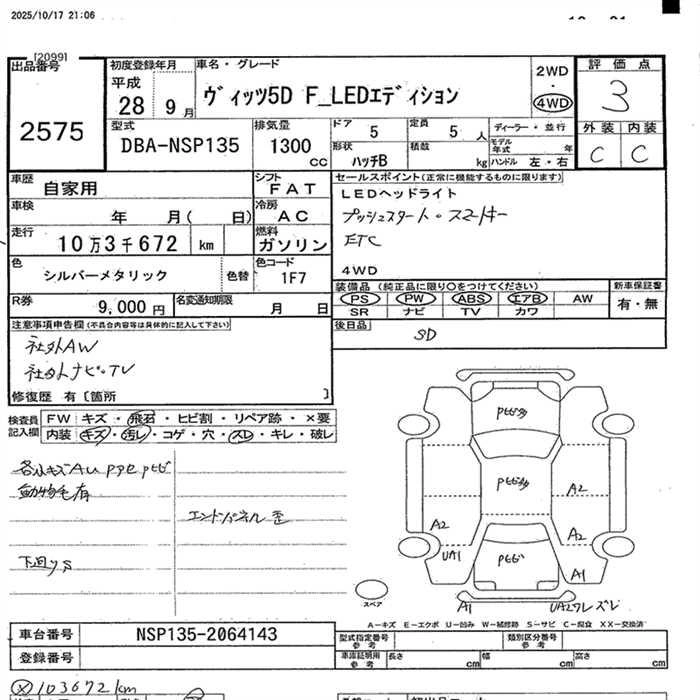 2025/10/17 21:06
[2099]
出品番号 初度登録年月 車名・グレード 評価点
2575
平成 28 9月
ヴィッツ5D F_LEDエディション
2WD ・ 4WD
3
型式 排気量 ドア 5 定員 5人 ディーラー・並行 外装 内装
DBA-NSP135 1300cc 形状 ハッチB 積載 kg モデル年式 年 ハンドル 左・右
C C
車歴 自家用 シフト FAT セールスポイント(正常に機能するものに限ります)
車検 年 月( 日) 冷房 AC LEDヘッドライト
プッシュスタート・スマートキー
走行 10万3千672 km 燃料 ガソリン ETC
色 シルバーメタリック 色替 色コード 1F7 4WD
装備品(純正品に限り○をつけてください) 新車保証書
R券 9,000円 名変通知期限 月 日 PS PW ABS エアB AW 有・無
SR ナビ TV カワ
注意事項申告欄(不具合内容等は具体的に記入して下さい) 後日品 SD
社外AW
社外ナビ・TV
修復歴 有〔箇所 〕
検査員記入欄 FW キズ・飛石・ヒビ割・リペア跡・×要
内装 キズ・汚レ・コゲ・穴・スレ・キレ・破レ
動物毛有
エンドパネル歪
下回りS
A2
A2
A2
UA1
A1
スペア
A1
A-キズ E-エクボ U-凹み W-補修跡 S-サビ C-腐食 XX-交換済
車台番号 NSP135-2064143 型式指定番号 参考 類別区分番号 参考
登録番号 車庫証明用 参考 長さ cm 幅 cm 高さ cm
103672km